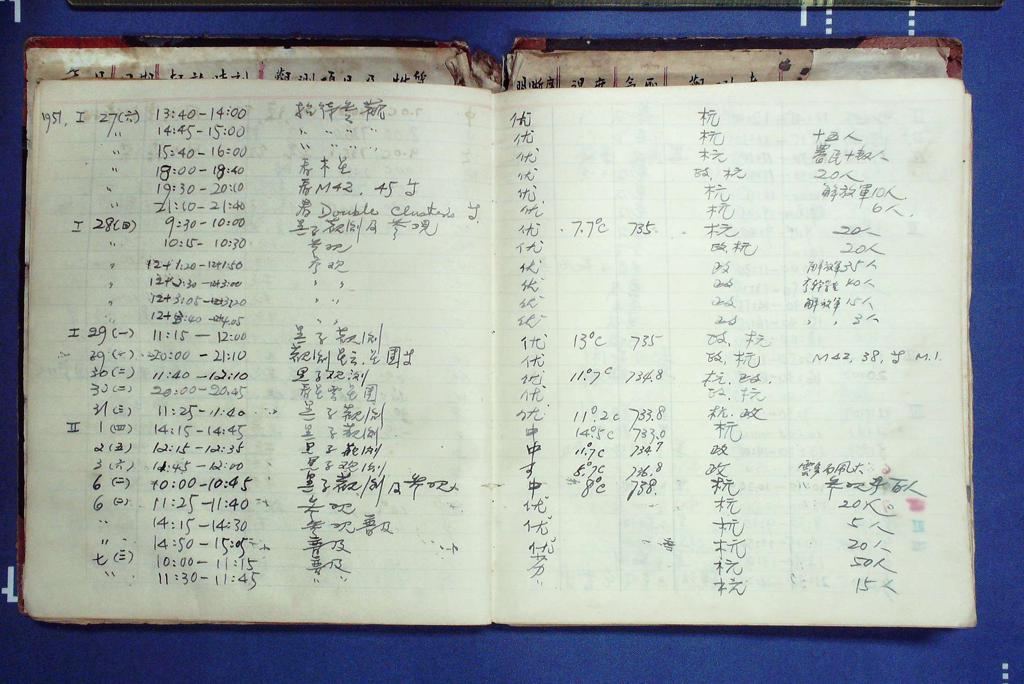 1951, I 27(六) 13:40-14:00 招待參觀 优 杭
〃 14:45-15:00 〃 〃 〃 〃 优 杭 十五人
〃 15:40-16:00 〃 〃 〃 〃 优 杭
〃 18:00-18:40 看木星 优 政, 杭 20人
〃 19:30-20:10 看M42, 45 优 杭 解放軍10人
〃 21:10-21:40 看Double Clusters 优 杭 6人.
I 28(日) 9:30-10:00 黑子觀測及參观 优 7.7°C 735. 杭 20人
〃 10:15-10:30 參观 优 政杭 20人
〃 12+1:20-12+1:50 參观 优 政 解放軍35人
〃 12+2:30-12+3:00 〃 〃 优 政 40人
〃 12+3:05-12+3:20 〃 〃 优 政 解放軍15人
〃 12+3:40-12+4:05 〃 〃 优 政 〃 〃 3人
I 29(一) 11:15-12:00 黑子觀測 优 13°C 735 政, 杭
29(一) 20:00-21:10 觀測星雲星團 优 政, 杭 M42, 38, M.1.
30(二) 11:40-12:10 黑子观測 优 11.7°C 734.8 杭, 政.
30(二) 20:00-20:45 看星雲星團 优 政, 杭
31(三) 11:25-11:40 黑子觀測 优 11.2C 733.8 杭, 政
II 1(四) 14:15-14:45 黑子觀測 中 14.5C 733.0 杭
2(五) 12:15-12:35 黑子觀測 中 11.7C 734.7 政
3(六) 11:45-12:00 黑子观測 8.7C 736.8 政
6(二) 10:00-10:45 黑子觀測及參观 中 8°C 738. 杭
6(二) 11:25-11:40 參观 优 杭 20人
〃 14:15-14:30 參观普及 优 杭 5人
〃 14:50-15:05 普及 优 杭 20人
七(三) 10:00-11:15 普及 劣 杭 50人
〃 11:30-11:45 〃 〃 杭 15人